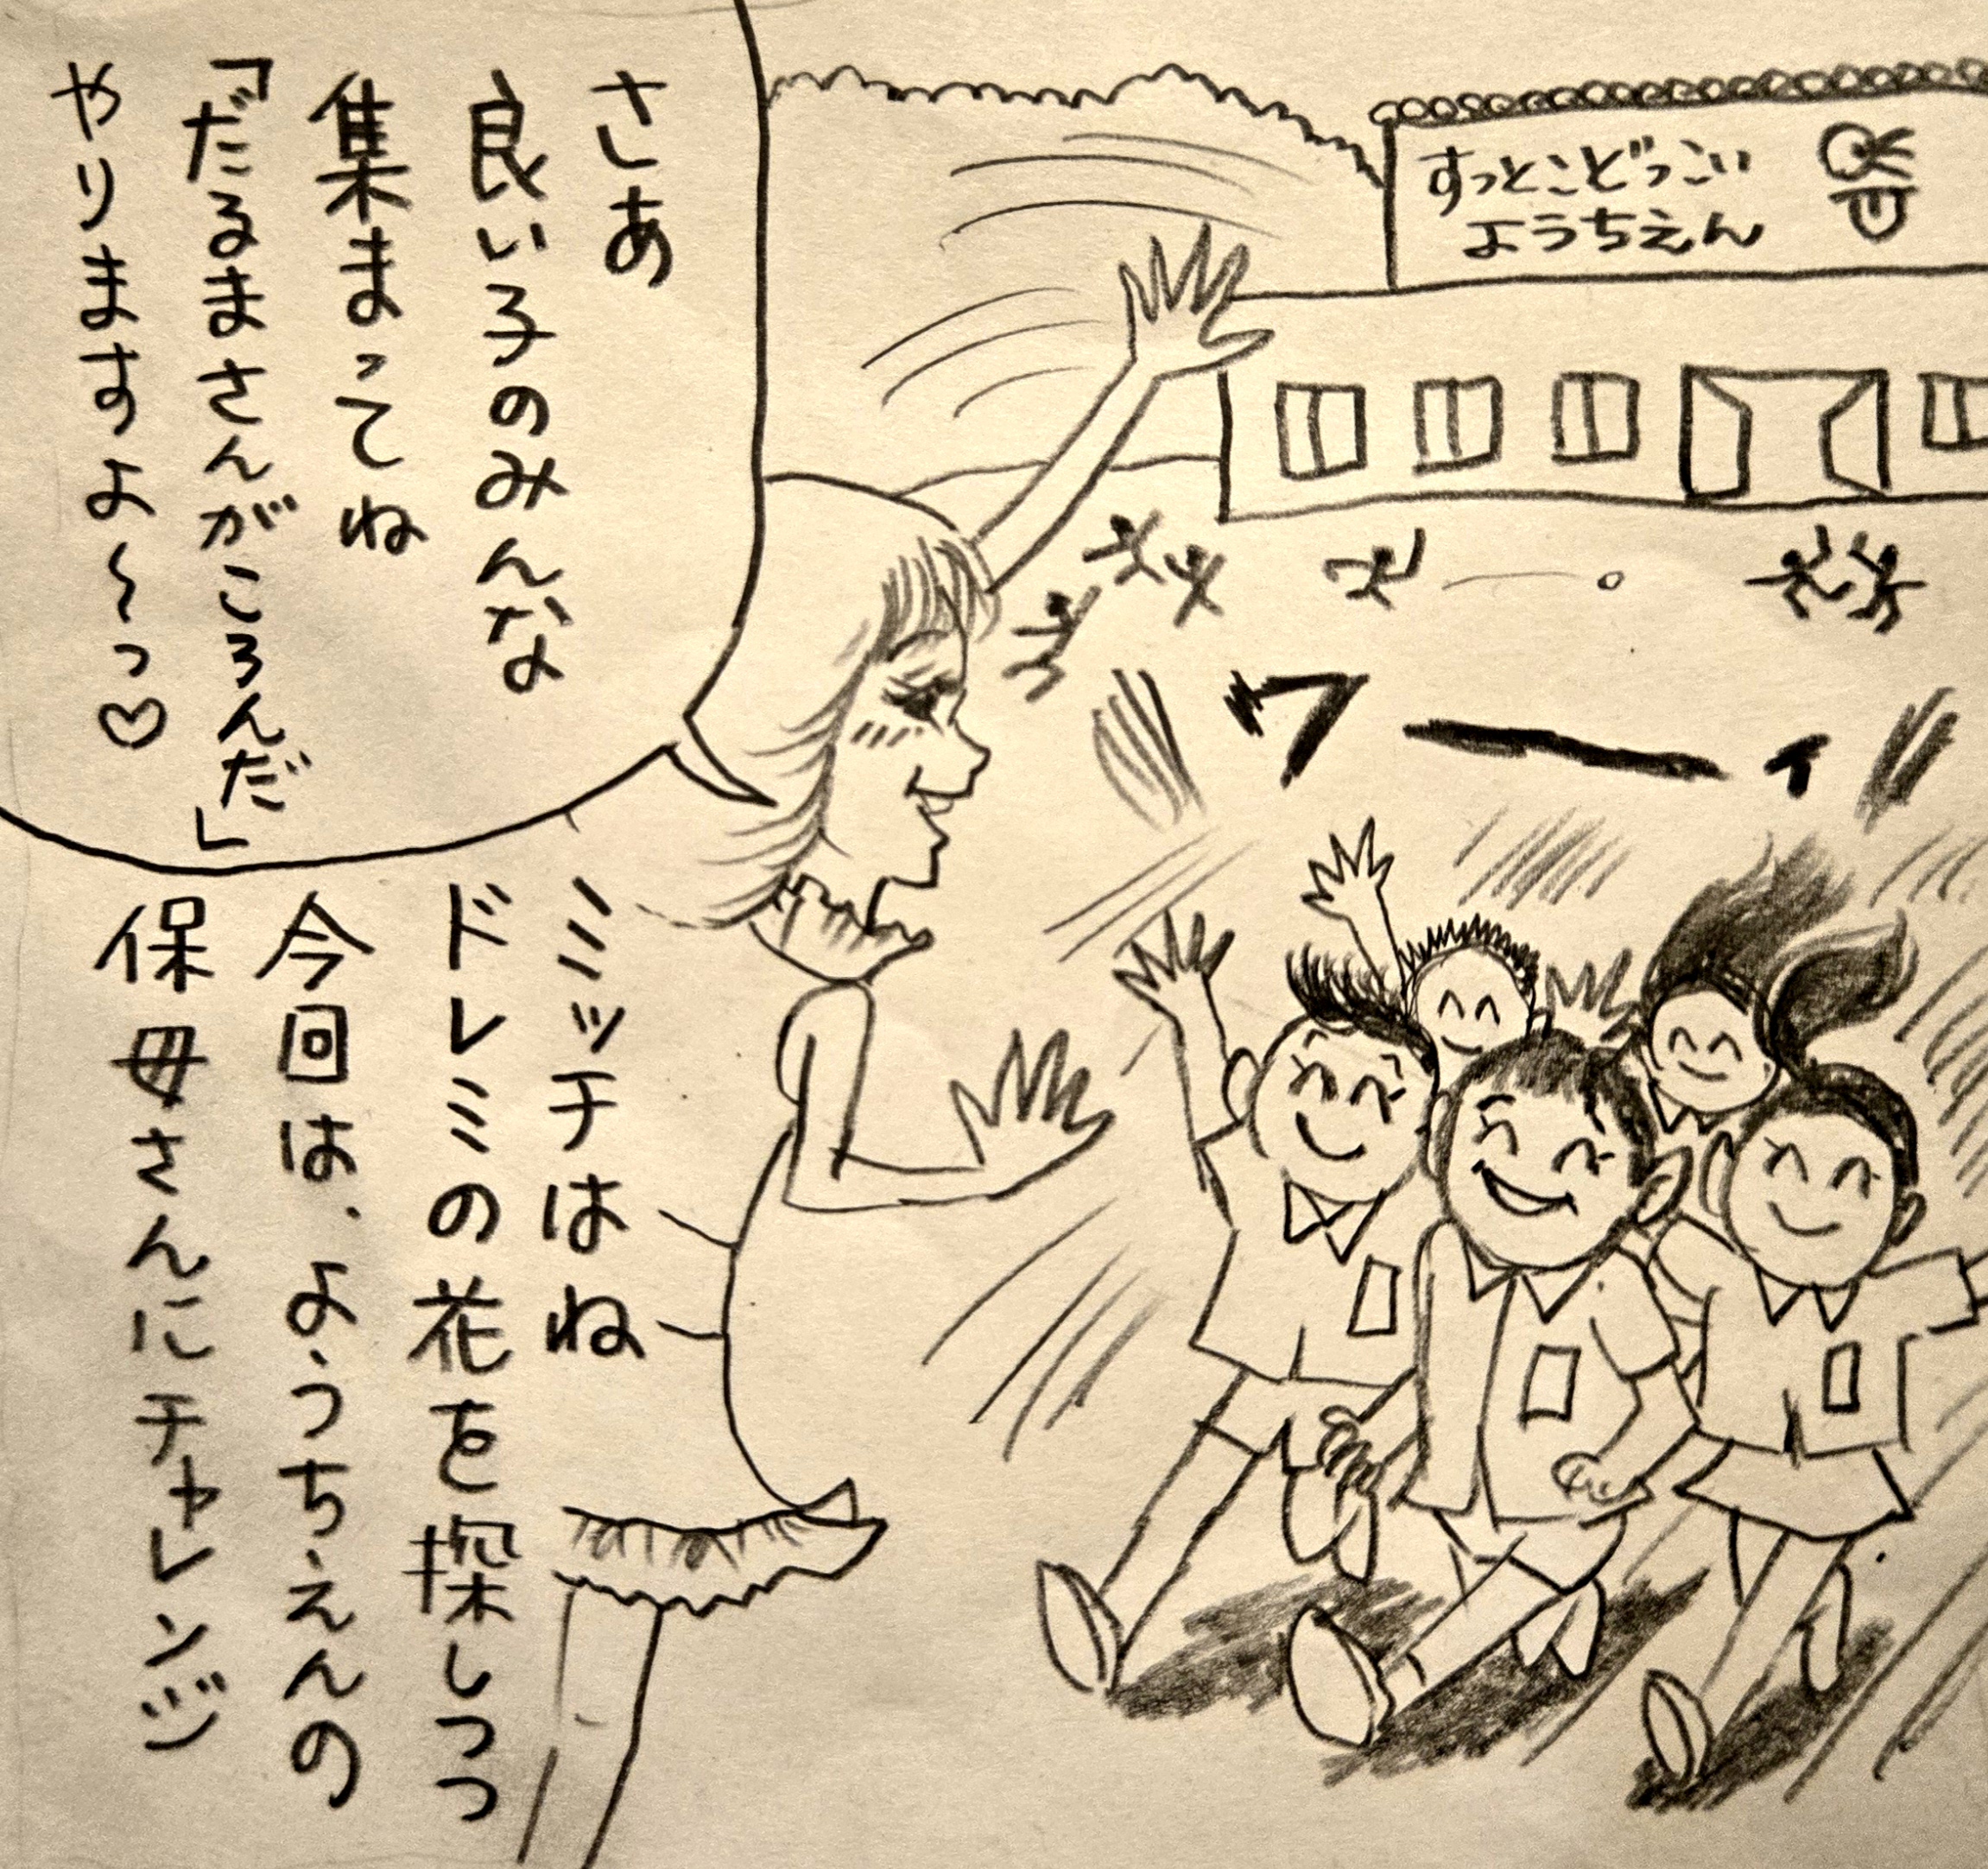 さあ
良い子のみんな
集まってね
「だるまさんがころんだ」
やりますよ〜っ♡
すっとこどっこい
ようちえん
ワーィ
ミミッチはね
ドレミの花を探しつつ
今回は、ようちえんの
保母さんにチャレンジ